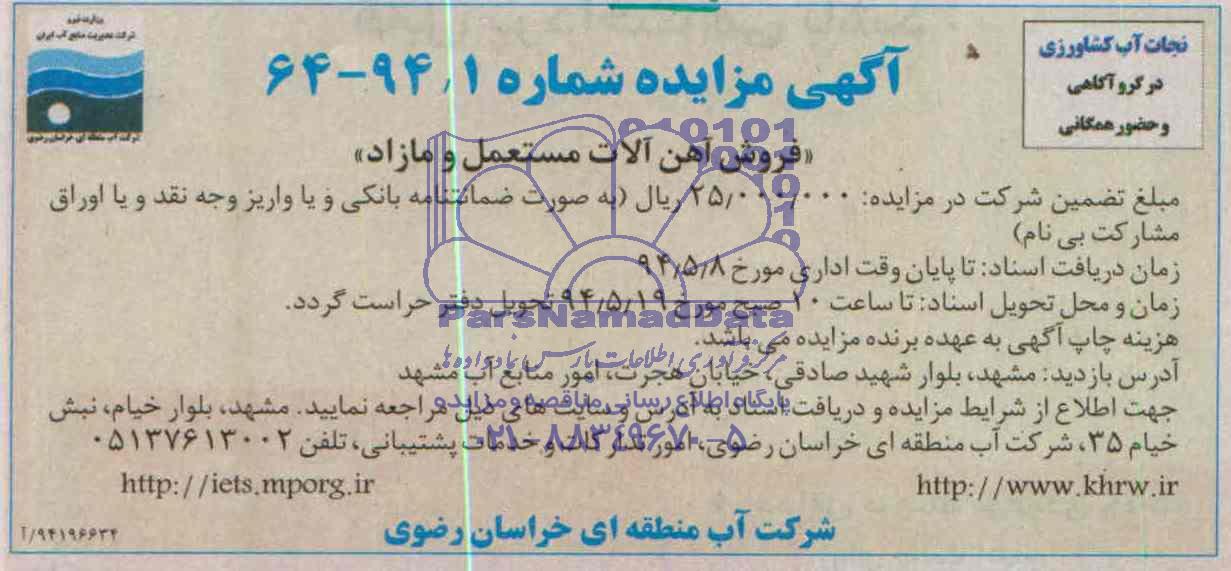 وزارت نیرو
شرکت مدیریت منابع آب ایران
شرکت آب منطقه ای خراسان رضوی
نجات آب کشاورزی
در گرو آگاهی
و حضور همگانی
آگهی مزایده شماره ۹۴٫۱-۶۴
«فروش آهن آلات مستعمل و مازاد»
مبلغ تضمین شرکت در مزایده: ۲۵٫۰۰۰٫۰۰۰ ریال (به صورت ضمانتنامه بانکی و یا واریز وجه نقد و یا اوراق
مشارکت بی نام)
زمان دریافت اسناد: تا پایان وقت اداری مورخ ۹۴٫۵٫۸
زمان و محل تحویل اسناد: تا ساعت ۱۰ صبح مورخ ۹۴٫۵٫۱۹ تحویل دفتر حراست گردد.
هزینه چاپ آگهی به عهده برنده مزایده می باشد.
آدرس بازدید: مشهد، بلوار شهید صادقی، خیابان هجرت، امور منابع آب مشهد
جهت اطلاع از شرایط مزایده و دریافت اسناد به آدرس و سایت های ذیل مراجعه نمایید. مشهد، بلوار خیام، نبش
خیام ۳۵، شرکت آب منطقه ای خراسان رضوی، امور تدارکات و خدمات پشتیبانی، تلفن ۰۵۱۳۷۶۱۳۰۰۲
http://www.khrw.ir
http://iets.mporg.ir
شرکت آب منطقه ای خراسان رضوی
۹۴۱۹۶۶۳۴/آ
ParsNamadData
مرکز فرآوری اطلاعات پارس نماد داده ها
پایگاه اطلاع رسانی مناقصه و مزایده
۰۲۱-۸۸۳۴۹۶۷۰-۵